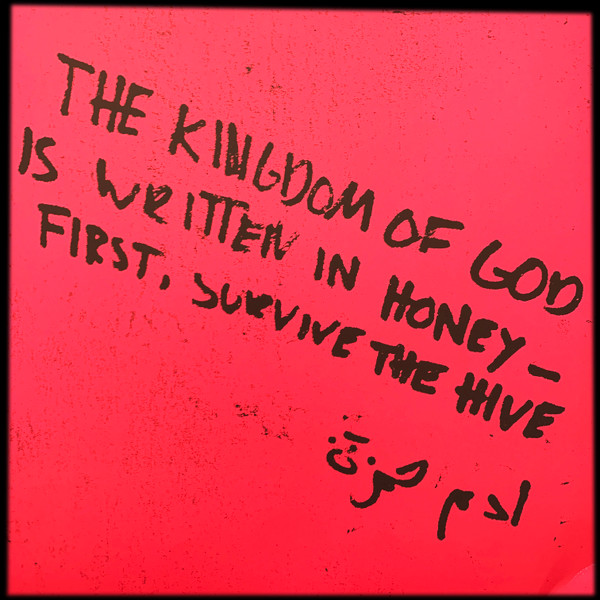 THE KINGDOM OF GOD
IS WRITTEN IN HONEY –
FIRST, SURVIVE THE HIVE
ادم